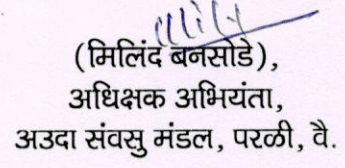 (मिलिंद बनसोडे),
अधिक्षक अभियंता,
अउदा संवसु मंडल, परळी, वै.